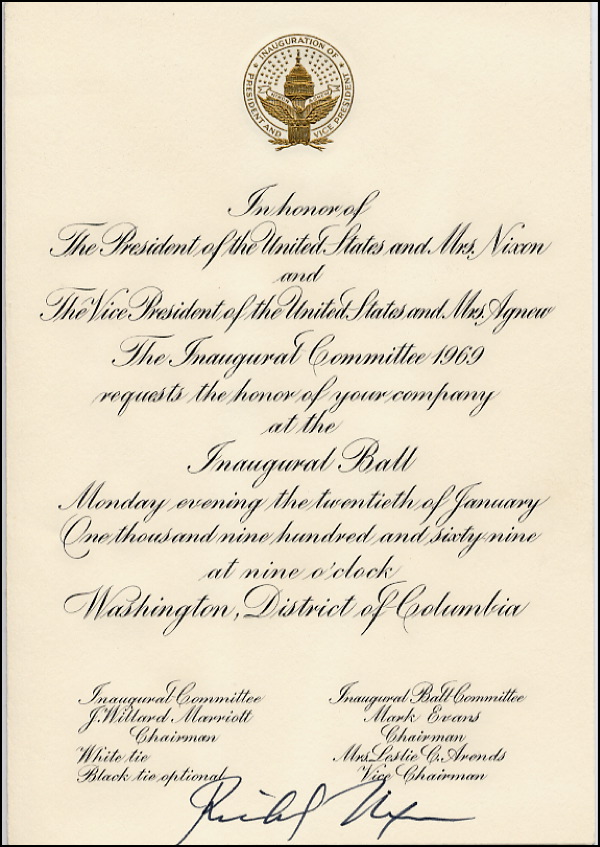 INAUGURATION OF
PRESIDENT AND VICE PRESIDENT
In honor of
The President of the United States and Mrs. Nixon
and
The Vice President of the United States and Mrs. Agnew
The Inaugural Committee 1969
requests the honor of your company
at the
Inaugural Ball
Monday evening the twentieth of January
One thousand nine hundred and sixty nine
at nine o'clock
Washington, District of Columbia
Inaugural Committee
J. Willard Marriott
Chairman
White tie
Black tie optional
Inaugural Ball Committee
Mark Evans
Chairman
Mrs. Leslie C. Arends
Vice Chairman
Richard Nixon